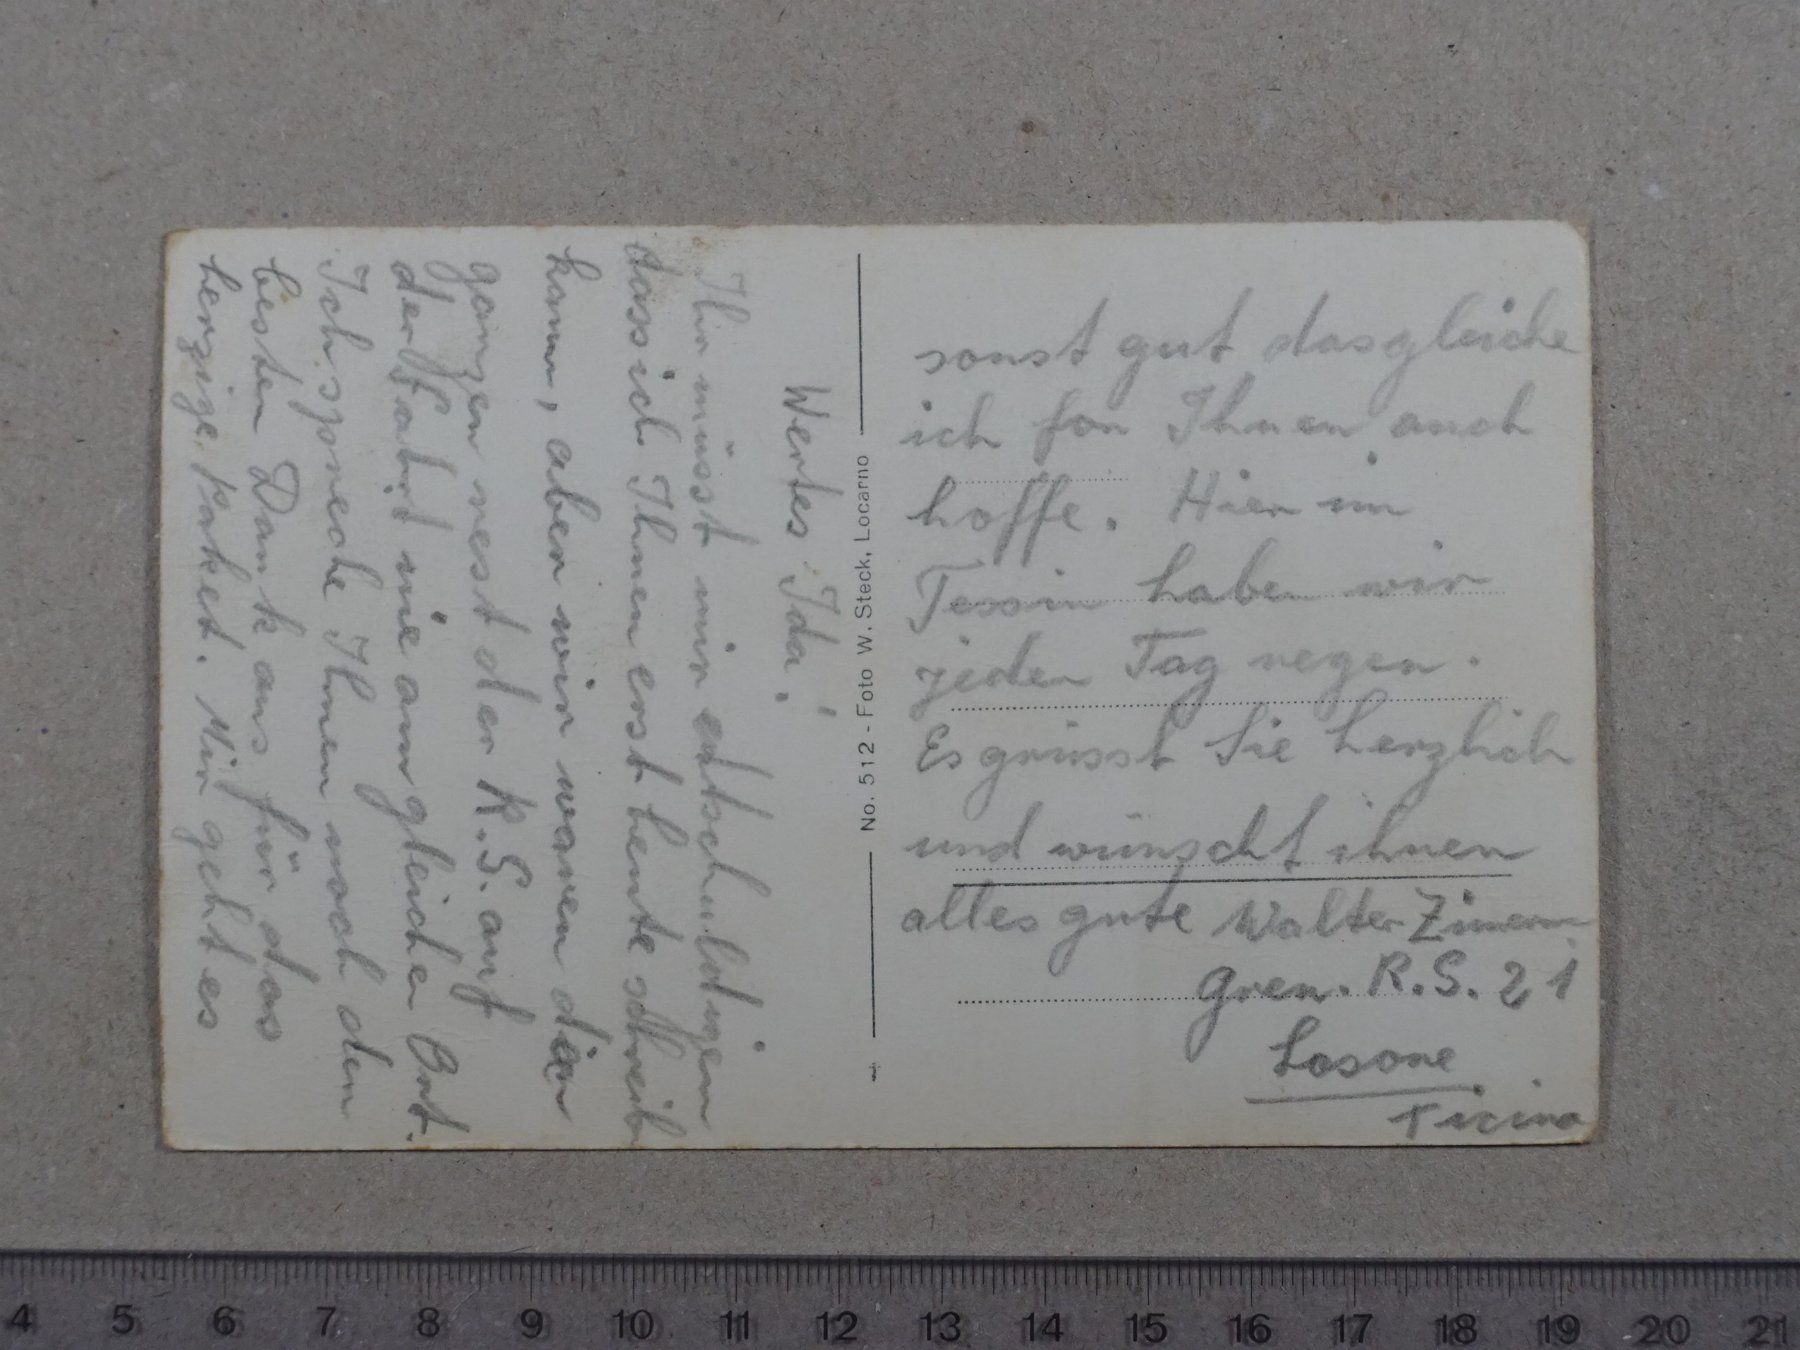 Wertes Ida!
Ihr müsst mir entschuldigen
dass ich Ihnen erst heute schreib
kann, aber wir waren dien
ganzen rest der R.S. auf
der Fahrt nie am gleichen Ort.
Ich spreche Ihnen noch den
besten Dank aus für das
herzige Paket. Mir geht es
No. 512 - Foto W. Steck, Locarno
sonst gut dasgleiche
ich fon Ihnen auch
hoffe. Hier im
Tessin haben wir
jeden Tag regen.
Es grüsst Sie herzlich
und wünscht ihnen
alles gute Walter Zimerm
Gren. R.S. 21
Losone
Ticino
4 5 6 7 8 9 10 11 12 13 14 15 16 17 18 19 20 21